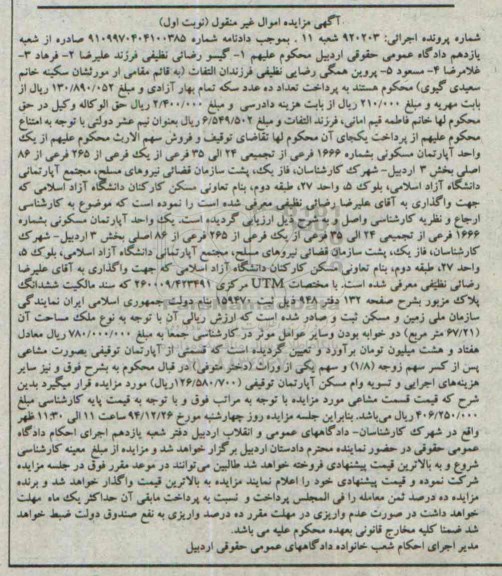 آگهی مزایده اموال غیر منقول (نوبت اول)
شماره پرونده اجرائی: ۹۲۰۲۰۳ شعبه ۱۱ . بموجب دادنامه شماره ۹۱۰۹۹۷۰۴۰۴۱۰۰۳۸۵ صادره از شعبه
یازدهم دادگاه عمومی حقوقی اردبیل محکوم علیهم ۱- گیسو رضائی نظیفی فرزند علیرضا ۲- فرهاد ۳-
غلامرضا ۴- مسعود ۵- پروین همگی رضایی نظیفی فرزندان التفات (به قائم مقامی از مورثشان سکینه خانم
سعیدی گیوی) محکوم هستند به پرداخت تعداد ده عدد سکه تمام بهار آزادی و مبلغ ۱۳۰/۸۹۰/۰۵۲ ریال از
بابت مهریه و مبلغ ۲۱۰/۰۰۰ ریال از بابت هزینه دادرسی و مبلغ ۲/۴۰۰/۰۰۰ ریال حق الوکاله وکیل در حق
محکوم لها خانم فاطمه قیم امانی، فرزند التفات و مبلغ ۶/۵۴۹/۵۰۲ ریال بعنوان نیم عشر دولتی با توجه به امتناع
محکوم علیهم از پرداخت یکجای آن محکوم لها تقاضای توقیف و فروش سهم الارث محکوم علیهم از یک
واحد آپارتمان مسکونی بشماره ۱۶۶۶ فرعی از تجمیعی ۲۴ الی ۳۵ فرعی از یک فرعی از ۲۶۵ فرعی از ۸۶
اصلی بخش ۳ اردبیل- شهرک کارشناسان، فاز یک، پشت سازمان قضائی نیروهای مسلح، مجتمع آپارتمانی
دانشگاه آزاد اسلامی، بلوک ۵، واحد ۲۷، طبقه دوم، بنام تعاونی مسکن کارکنان دانشگاه آزاد اسلامی که
جهت واگذاری به آقای علیرضا رضائی نظیفی معرفی شده است را نموده است که موضوع به کارشناسی
ارجاع و نظریه کارشناسی واصل و به شرح ذیل ارزیابی گردیده است. یک واحد آپارتمان مسکونی بشماره
۱۶۶۶ فرعی از تجمیعی ۲۴ الی ۳۵ فرعی از یک فرعی از ۲۶۵ فرعی از ۸۶ اصلی بخش ۳ اردبیل- شهرک
کارشناسان، فاز یک، پشت سازمان قضائی نیروهای مسلح، مجتمع آپارتمانی دانشگاه آزاد اسلامی، بلوک ۵،
واحد ۲۷، طبقه دوم، بنام تعاونی مسکن کارکنان دانشگاه آزاد اسلامی که جهت واگذاری به آقای علیرضا
رضائی نظیفی معرفی شده است. با مختصات UTM مرکزی ۲۶۰۰۰۹/۴۲۳۴۹۱ که سند مالکیت ششدانگ
پلاک مزبور بشرح صفحه ۱۳۲ دفتر ۹۴۸ ذیل ثبت ۱۵۹۴۷۰ بنام دولت جمهوری اسلامی ایران نمایندگی
سازمان ملی زمین و مسکن ثبت و صادر شده است که ارزش ریالی آن با توجه به نوع ملک مساحت آن
(۶۷/۲۱ متر مربع) دو خوابه بودن وسایر عوامل موثر در کارشناسی جمعا به مبلغ ۷۸۰/۰۰۰/۰۰۰ ریال معادل
هفتاد و هشت میلیون تومان برآورد و تعیین گردیده است که قسمتی از آپارتمان توقیفی بصورت مشاعی
پس از کسر سهم زوجه (۱/۸) و سهم یکی از وراث (دختر متوفی) در قبال محکوم به بشرح فوق و نیز سایر
هزینه‌های اجرایی و تسویه وام مسکن آپارتمان توقیفی (۱۲۶/۵۸۰/۷۰۰ریال) مورد مزایده قرار میگیرد بدین
شرح که قیمت قسمت مشاعی مورد مزایده با توجه به مراتب فوق و با توجه به قیمت پایه کارشناسی مبلغ
۴۰۶/۲۵۰/۰۰۰ ریال می‌باشد. بنابراین جلسه مزایده روز چهارشنبه مورخ ۹۴/۱۲/۲۶ ساعت ۱۱ الی ۱۱:۳۰ ظهر
واقع در شهرک کارشناسان- دادگاههای عمومی و انقلاب اردبیل دفتر شعبه یازدهم اجرای احکام دادگاه
عمومی حقوقی در حضور نماینده محترم دادستان اردبیل برگزار خواهد شد و مزایده از مبلغ معینه کارشناسی
شروع و به بالاترین قیمت پیشنهادی فروخته خواهد شد طالبین می‌توانند در موعد مقرر فوق در جلسه مزایده
شرکت نموده و قیمت پیشنهادی خود را اعلام نمایند مزایده به بالاترین قیمت واگذار خواهد شد و برنده
مزایده ده درصد ثمن معامله را فی المجلس پرداخت و نسبت به پرداخت مابقی آن حداکثر یک ماه مهلت
خواهد داشت در صورت عدم واریزی در مهلت مقرر ده درصد واریزی به نفع صندوق دولت ضبط خواهد
شد ضمنا کلیه مخارج قانونی بعهده محکوم علیه می باشد.
مدیر اجرای احکام شعب خانواده دادگاههای عمومی حقوقی اردبیل